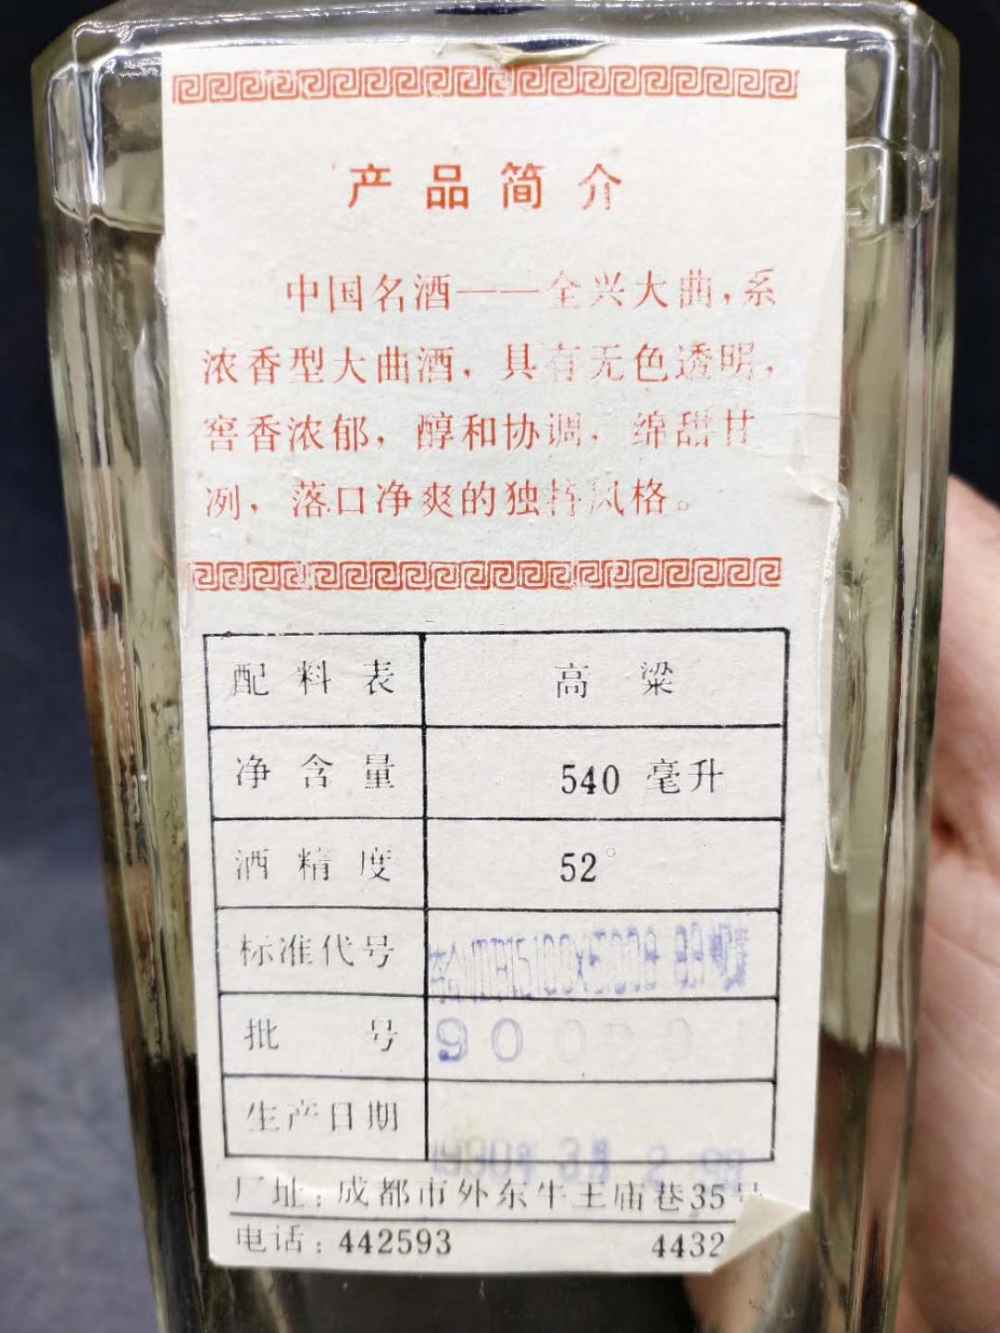 产品简介
中国名酒——全兴大曲，系
浓香型大曲酒，具有无色透明，
窖香浓郁，醇和协调，绵甜甘
冽，落口净爽的独特风格。
配料表 高粱
净含量 540 毫升
酒精度 52°
标准代号
批号 90
生产日期 1990年 3月 2
厂址：成都市外东牛王庙巷35号
电话：442593 4432